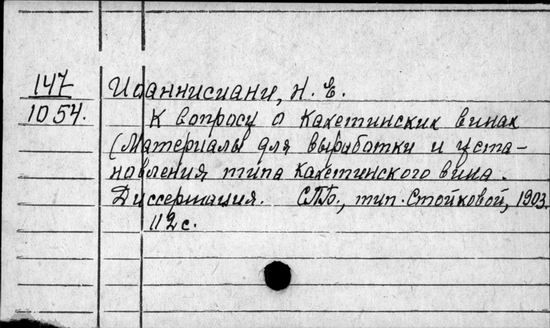 147
1054.
Иоаннисиани, Н. Е.
К вопросу о Кахетинских винах
(Материалы для выработки и уста-
новления типа кахетинского вина.
Диссертация. СПБ., тип. Стойковой, 1903.
112 с.